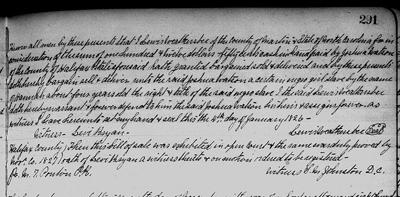 291
Know all men by these presents that I Lewis Leatherbee of the county of Martin & State of North Carolina for in
consideration of the sum of one hundred & twelve dollars & fifty cents cash in hand paid by Joshua
of the county of Halifax & State aforesaid hath granted bargained sold & delivered and by these presents
doth hereby bargain sell & deliver unto the said Joshua a certain negro girl slave by the name
of about four years old the right & title of the said negro slave I the said Lewis Leatherbee
doth hereby warrant & forever defend to him the said Joshua his heirs & assigns forever as
witness I have hereunto set my hand & seal this the 4th day of January 1826
Witness Levi Lewis Leatherbee Seal
Halifax County; Then this bill of sale was exhibited in open court & the same was duly proved by
Nov. Co. 1827 oath of Levi a witness thereto & on motion ordered to be registered
witness Johnston D.C.